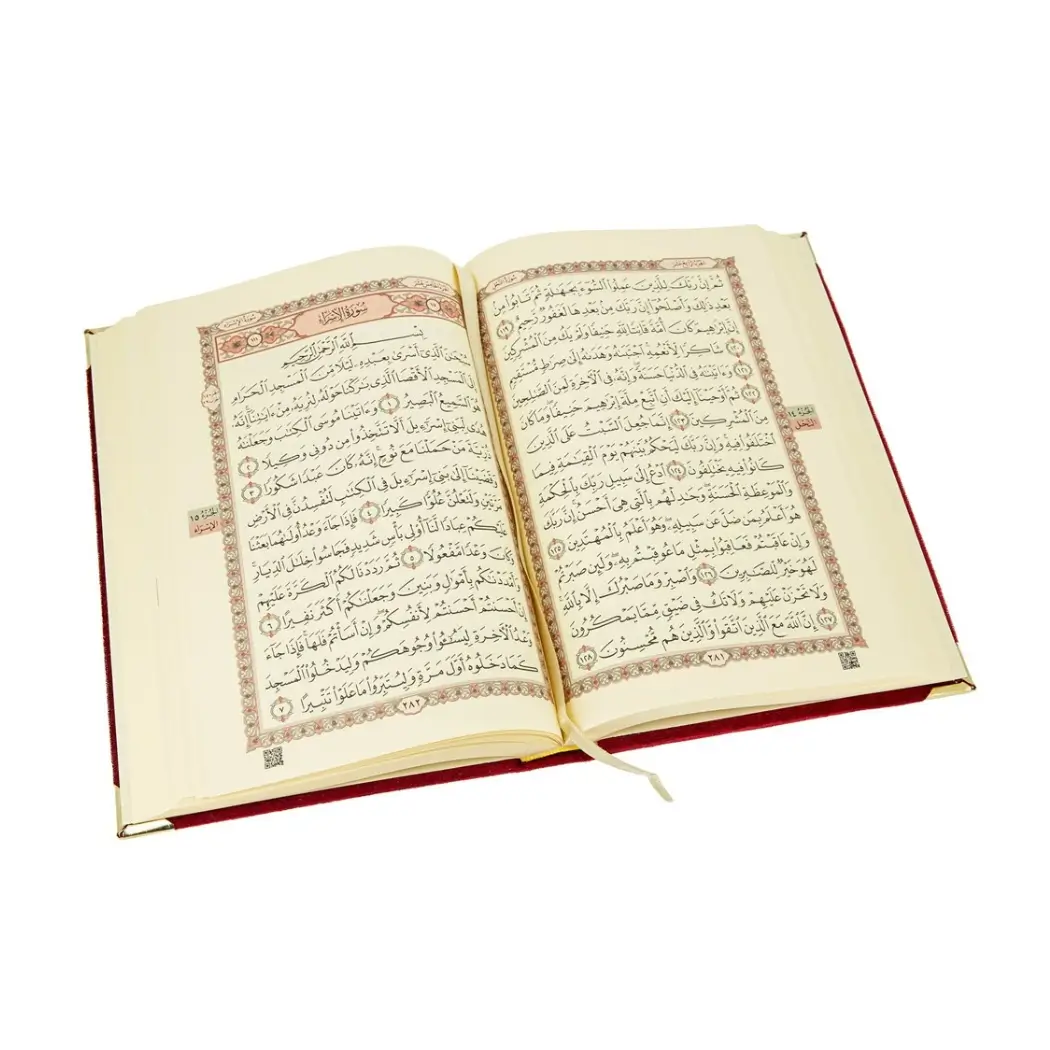 سورة النحل
الجزء الرابع عشر
ثُمَّ إِنَّ رَبَّكَ لِلَّذِينَ عَمِلُوا۟ ٱلسُّوٓءَ بِجَهَٰلَةٍ ثُمَّ تَابُوا۟ مِنۢ
بَعْدِ ذَٰلِكَ وَأَصْلَحُوٓا۟ إِنَّ رَبَّكَ مِنۢ بَعْدِهَا لَغَفُورٌ رَّحِيمٌ ١١٩
إِنَّ إِبْرَٰهِيمَ كَانَ أُمَّةً قَانِتًا لِّلَّهِ حَنِيفًا وَلَمْ يَكُ مِنَ ٱلْمُشْرِكِينَ ١٢٠
شَاكِرًا لِّأَنْعُمِهِ ٱجْتَبَىٰهُ وَهَدَىٰهُ إِلَىٰ صِرَٰطٍ مُّسْتَقِيمٍ ١٢١
وَءَاتَيْنَٰهُ فِى ٱلدُّنْيَا حَسَنَةً وَإِنَّهُۥ فِى ٱلْءَاخِرَةِ لَمِنَ ٱلصَّٰلِحِينَ ١٢٢
ثُمَّ أَوْحَيْنَآ إِلَيْكَ أَنِ ٱتَّبِعْ مِلَّةَ إِبْرَٰهِيمَ حَنِيفًا وَمَا كَانَ
مِنَ ٱلْمُشْرِكِينَ ١٢٣ إِنَّمَا جُعِلَ ٱلسَّبْتُ عَلَى ٱلَّذِينَ
ٱخْتَلَفُوا۟ فِيهِ وَإِنَّ رَبَّكَ لَيَحْكُمُ بَيْنَهُمْ يَوْمَ ٱلْقِيَٰمَةِ فِيمَا
كَانُوا۟ فِيهِ يَخْتَلِفُونَ ١٢٤ ٱدْعُ إِلَىٰ سَبِيلِ رَبِّكَ بِٱلْحِكْمَةِ
وَٱلْمَوْعِظَةِ ٱلْحَسَنَةِ وَجَٰدِلْهُم بِٱلَّتِى هِىَ أَحْسَنُ إِنَّ رَبَّكَ
هُوَ أَعْلَمُ بِمَن ضَلَّ عَن سَبِيلِهِۦ وَهُوَ أَعْلَمُ بِٱلْمُهْتَدِينَ ١٢٥
وَإِنْ عَاقَبْتُمْ فَعَاقِبُوا۟ بِمِثْلِ مَا عُوقِبْتُم بِهِۦ وَلَئِن صَبَرْتُمْ
لَهُوَ خَيْرٌ لِّلصَّٰبِرِينَ ١٢٦ وَٱصْبِرْ وَمَا صَبْرُكَ إِلَّا بِٱللَّهِ
وَلَا تَحْزَنْ عَلَيْهِمْ وَلَا تَكُ فِى ضَيْقٍ مِّمَّا يَمْكُرُونَ ١٢٧
إِنَّ ٱللَّهَ مَعَ ٱلَّذِينَ ٱتَّقَوا۟ وَّٱلَّذِينَ هُم مُّحْسِنُونَ ١٢٨
الجزء ١٤
النحل
٢٨١
سورة الإسراء
الجزء الخامس عشر
سُورَةُ الإِسْرَاءِ
بِسْمِ ٱللَّهِ ٱلرَّحْمَٰنِ ٱلرَّحِيمِ
سُبْحَٰنَ ٱلَّذِىٓ أَسْرَىٰ بِعَبْدِهِۦ لَيْلًا مِّنَ ٱلْمَسْجِدِ ٱلْحَرَامِ
إِلَى ٱلْمَسْجِدِ ٱلْأَقْصَا ٱلَّذِى بَٰرَكْنَا حَوْلَهُۥ لِنُرِيَهُۥ مِنْ ءَايَٰتِنَآ إِنَّهُۥ
هُوَ ٱلسَّمِيعُ ٱلْبَصِيرُ ١ وَءَاتَيْنَا مُوسَى ٱلْكِتَٰبَ وَجَعَلْنَٰهُ
هُدًى لِّبَنِىٓ إِسْرَٰٓءِيلَ أَلَّا تَتَّخِذُوا۟ مِن دُونِى وَكِيلًا ٢
ذُرِّيَّةَ مَنْ حَمَلْنَا مَعَ نُوحٍ إِنَّهُۥ كَانَ عَبْدًا شَكُورًا ٣
وَقَضَيْنَآ إِلَىٰ بَنِىٓ إِسْرَٰٓءِيلَ فِى ٱلْكِتَٰبِ لَتُفْسِدُنَّ فِى ٱلْأَرْضِ
مَرَّتَيْنِ وَلَتَعْلُنَّ عُلُوًّا كَبِيرًا ٤ فَإِذَا جَآءَ وَعْدُ أُولَىٰهُمَا بَعَثْنَا
عَلَيْكُمْ عِبَادًا لَّنَآ أُو۟لِى بَأْسٍ شَدِيدٍ فَجَاسُوا۟ خِلَٰلَ ٱلدِّيَارِ
وَكَانَ وَعْدًا مَّفْعُولًا ٥ ثُمَّ رَدَدْنَا لَكُمُ ٱلْكَرَّةَ عَلَيْهِمْ
وَأَمْدَدْنَٰكُم بِأَمْوَٰلٍ وَبَنِينَ وَجَعَلْنَٰكُمْ أَكْثَرَ نَفِيرًا ٦
إِنْ أَحْسَنتُمْ أَحْسَنتُمْ لِأَنفُسِكُمْ وَإِنْ أَسَأْتُمْ فَلَهَا فَإِذَا جَآءَ
وَعْدُ ٱلْءَاخِرَةِ لِيَسُۥٓـُٔوا۟ وُجُوهَكُمْ وَلِيَدْخُلُوا۟ ٱلْمَسْجِدَ
كَمَا دَخَلُوهُ أَوَّلَ مَرَّةٍ وَلِيُتَبِّرُوا۟ مَا عَلَوْا۟ تَتْبِيرًا ٧
الجزء ١٥
الإسراء
٢٨٢